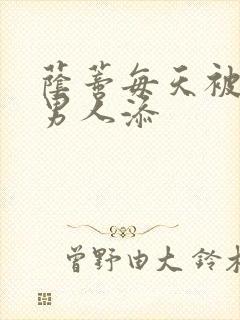 蔭蒂每天被
男人添
曾野由大 鈴木